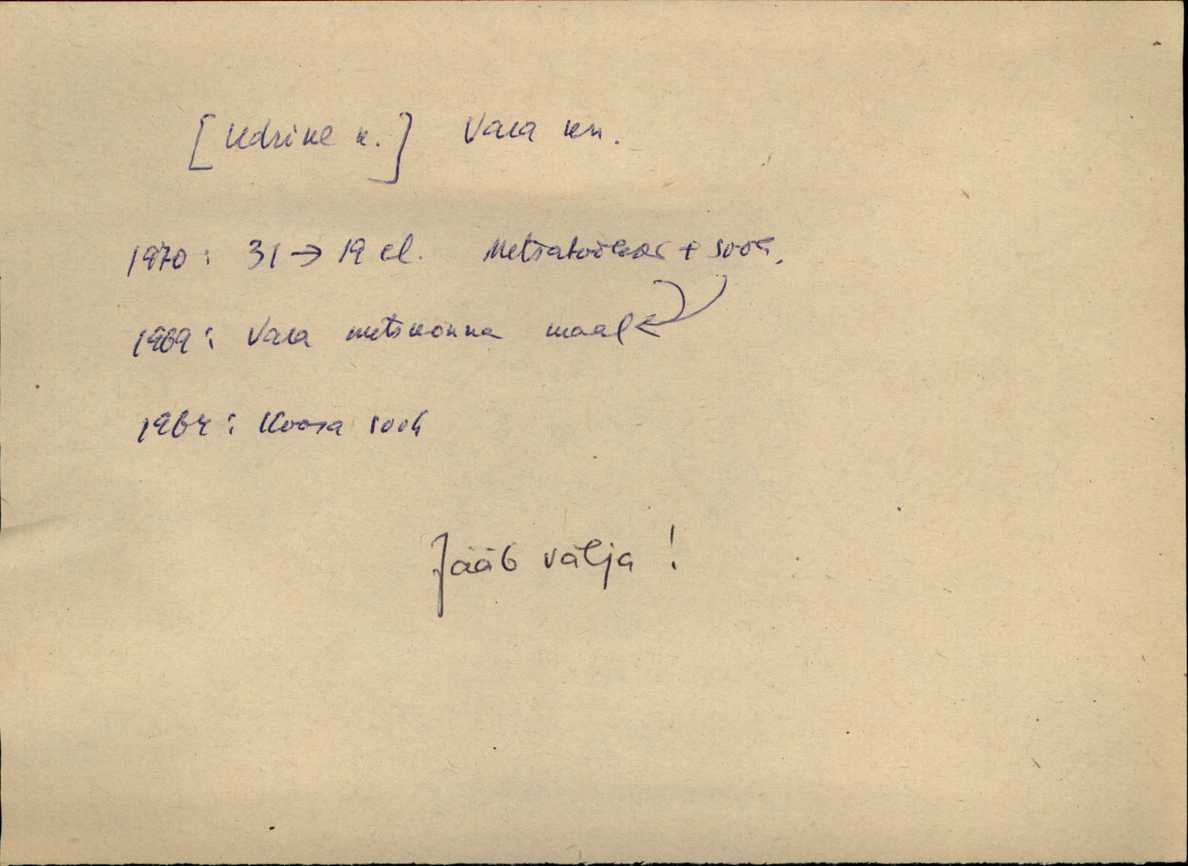 [Udriku k.] Vara kn.
1970: 31 → 19 el. Metsatöölised + sovh.
1969: Vara metskonna maal
1964: Koosa sovh
Jääb välja!